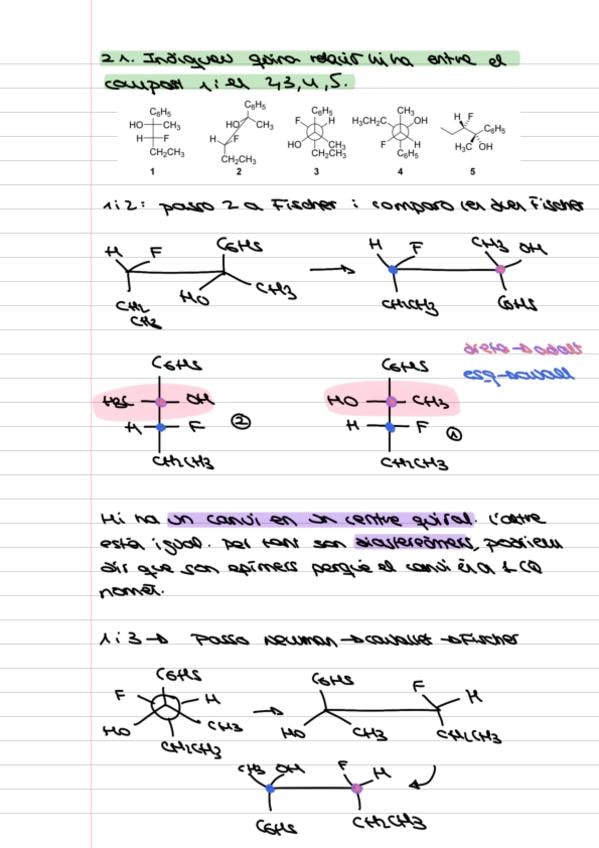 21. Indiqueu quina relació hi ha entre el
compost 1 i el 2,3,4,5.
C6H5 HO CH3 H F CH2CH3
C6H5 HO CH3 H F CH2CH3
C6H5 F H HO CH3 CH2CH3
CH3 H3CH2C OH F H C6H5
H F C6H5 H3C OH
1 2 3 4 5
1 i 2: passo 2 a Fischer i comparo les dues Fischer
H F C6H5 HO CH3 CH2 CH3
H F CH3 OH CH2CH3 C6H5
dreta → adalt
esq → avall
C6H5 C6H5
H3C OH HO CH3
H F ② H F ①
CH2CH3 CH2CH3
Hi ha un canvi en un centre quiral. L'altre
està igual. Per tant son diastereòmers, podríem
dir que son epímers perquè el canvi és a 1 CQ
només.
1 i 3 → Passo Neuman → cavallet → Fischer
C6H5 F H HO CH3 CH2CH3
C6H5 F H HO CH3 CH2CH3
CH3 OH F H
C6H5 CH2CH3